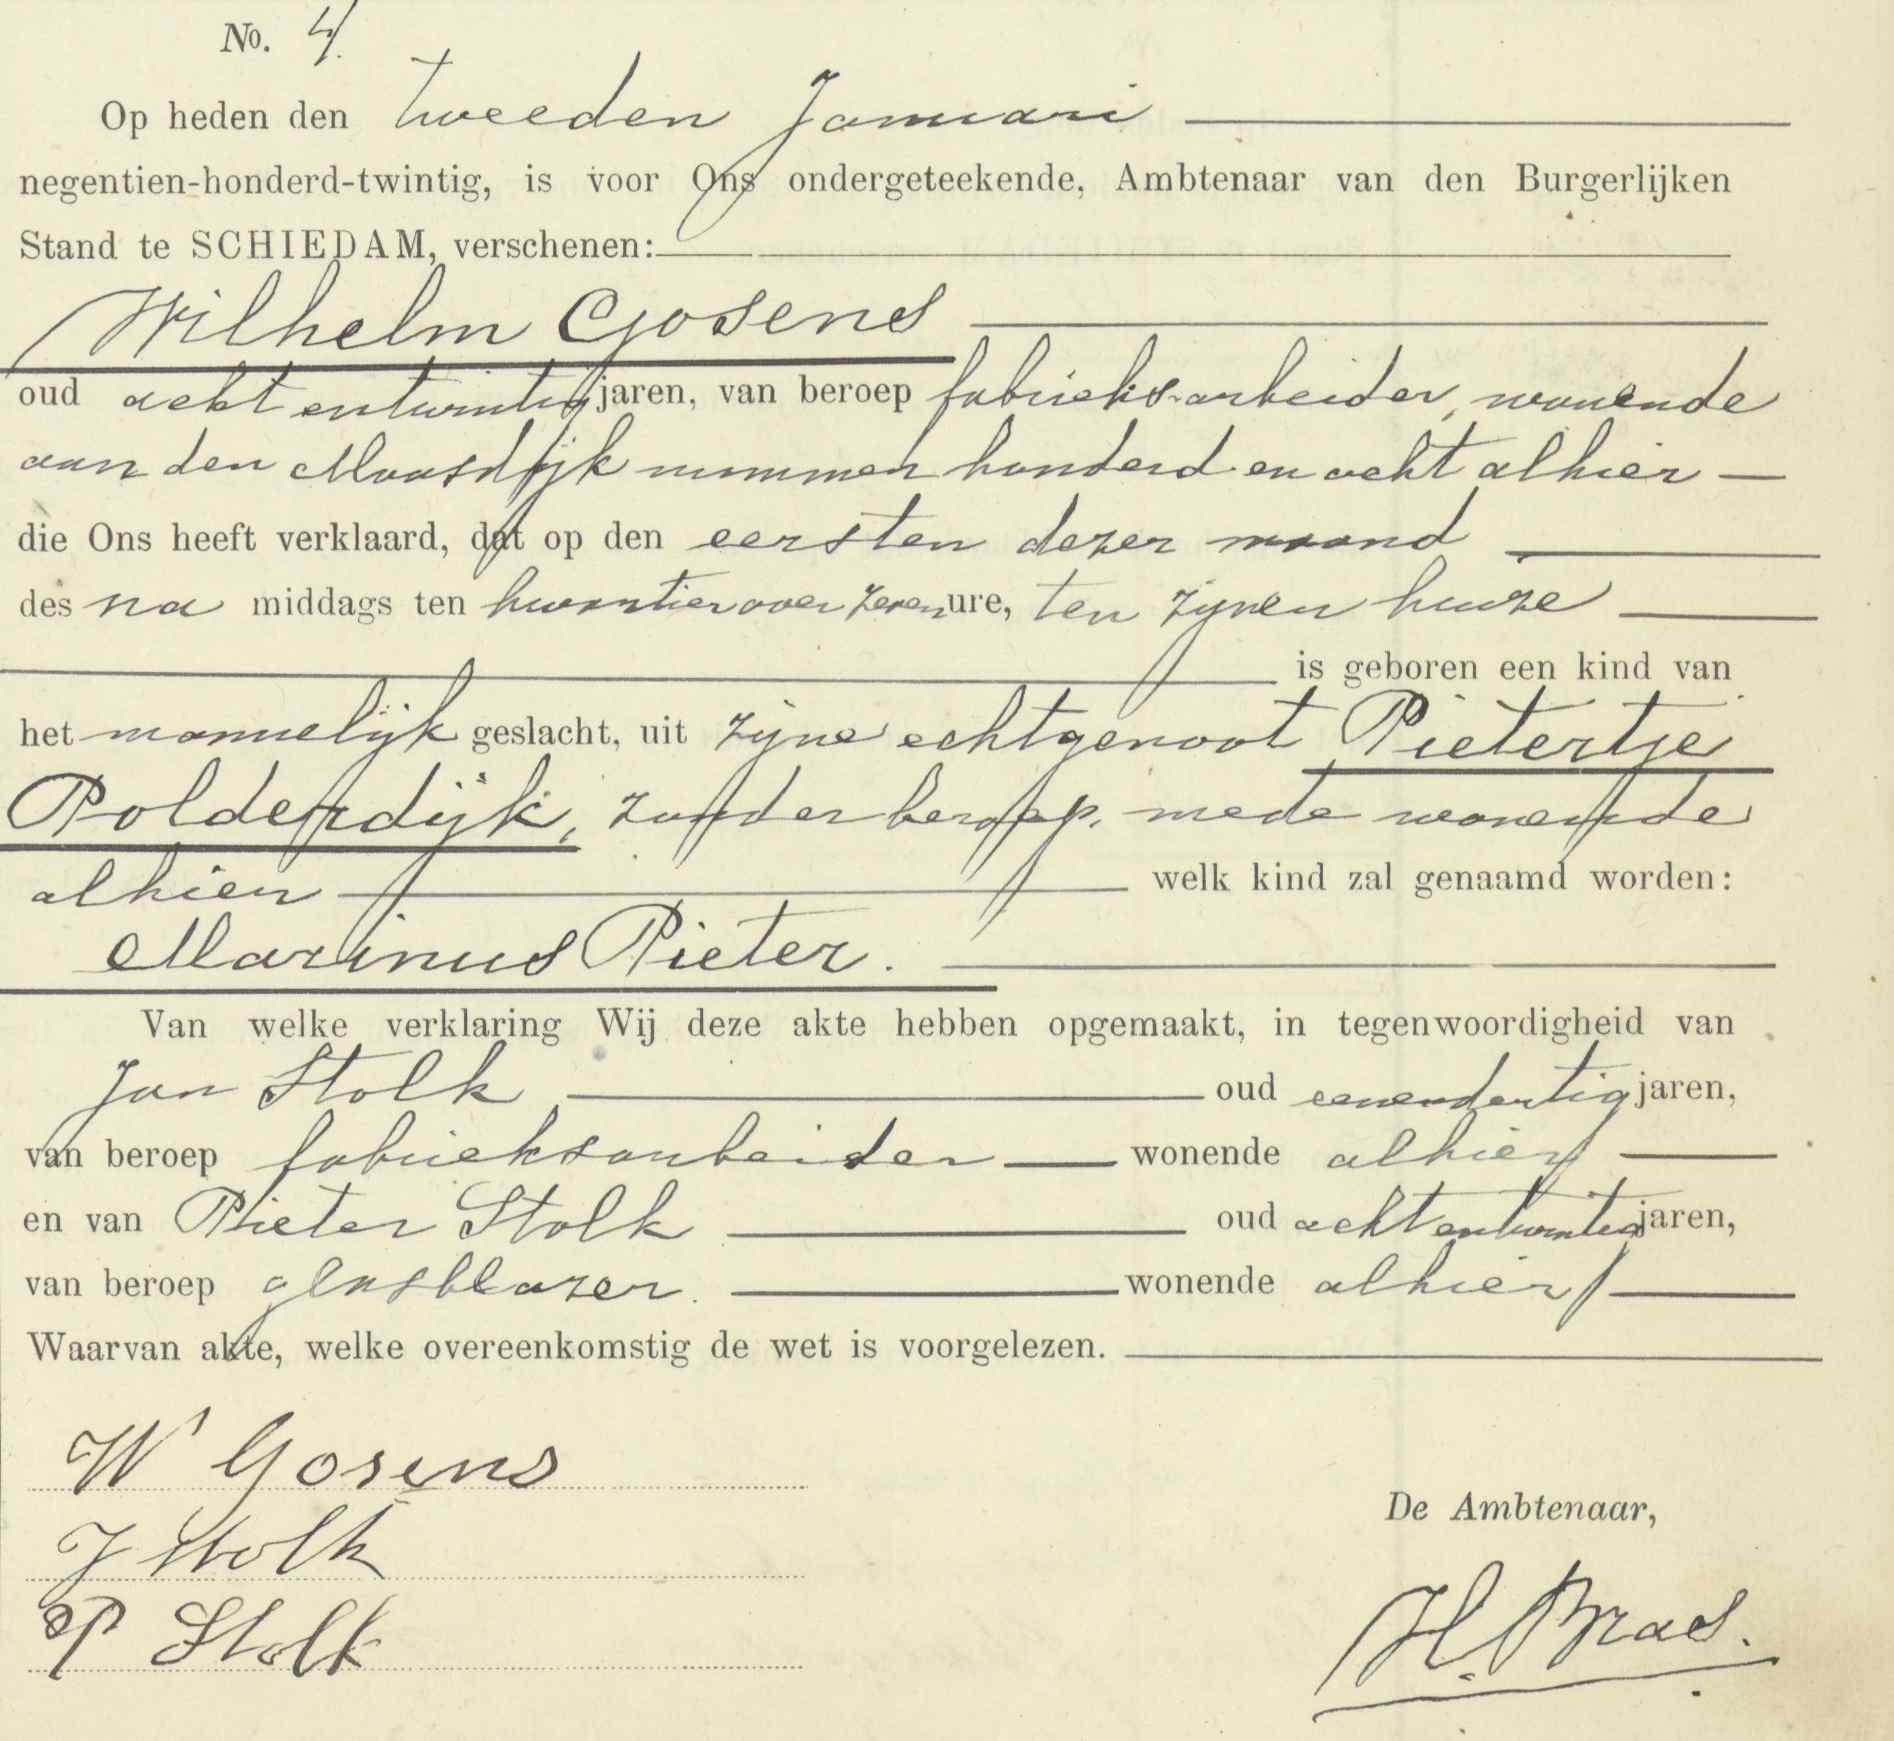 No. 4.
Op heden den tweeden Januari
negentien-honderd-twintig, is voor Ons ondergeteekende, Ambtenaar van den Burgerlijken
Stand te SCHIEDAM, verschenen:
Wilhelm Gosens
oud acht entwintig jaren, van beroep fabrieks-arbeider, wonende
aan den Maasdijk nummer honderd en acht alhier —
die Ons heeft verklaard, dat op den eersten dezer maand
des na middags ten kwartier over zeven ure, ten zijnen huize
is geboren een kind van
het mannelijk geslacht, uit zijne echtgenoot Pietertje
Polderdijk, zonder beroep, mede wonende
alhier welk kind zal genaamd worden:
Marinus Pieter.
Van welke verklaring Wij deze akte hebben opgemaakt, in tegenwoordigheid van
Jan Stolk oud eenendertig jaren,
van beroep fabrieksarbeider wonende alhier
en van Pieter Stolk oud acht entwintig jaren,
van beroep glasblazer. wonende alhier
Waarvan akte, welke overeenkomstig de wet is voorgelezen.
W Gosens
De Ambtenaar,
J Stolk
H. Braas.
P Stolk